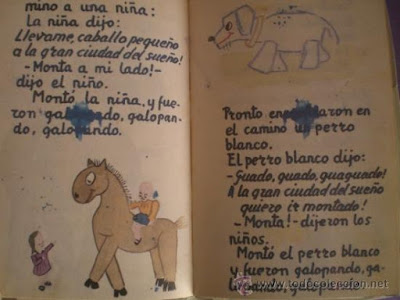 mino a una niña:
la niña dijo:
Llevame, caballo pequeño
a la gran ciudad del sueño!
-Monta a mi lado!-
dijo el niño.
Montó la niña, y fue-
ron galopando, galopan-
do, galopando.
Pronto encontraron en
el camino un perro
blanco.
El perro blanco dijo:
-Guado, guado, guaguado!
A la gran ciudad del sueño
quiero ir montado!
-Monta!-dijeron los
niños.
Montó el perro blanco
y fueron galopando, ga-
lopando, galopando.
www.todocoleccion.net